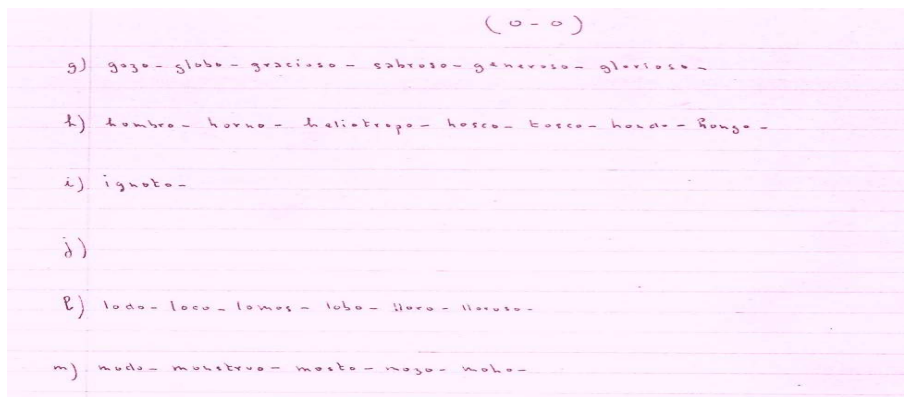 (o-o)
g) gozo - globo - gracioso - sabroso - generoso - glorioso -
h) hombro - horno - heliotropo - hosco - tosco - hondo - hongo -
i) ignoto -
j)
l) lodo - loco - lomos - lobo - lloro - lloroso -
m) modo - monstruo - mosto - mozo - moho -